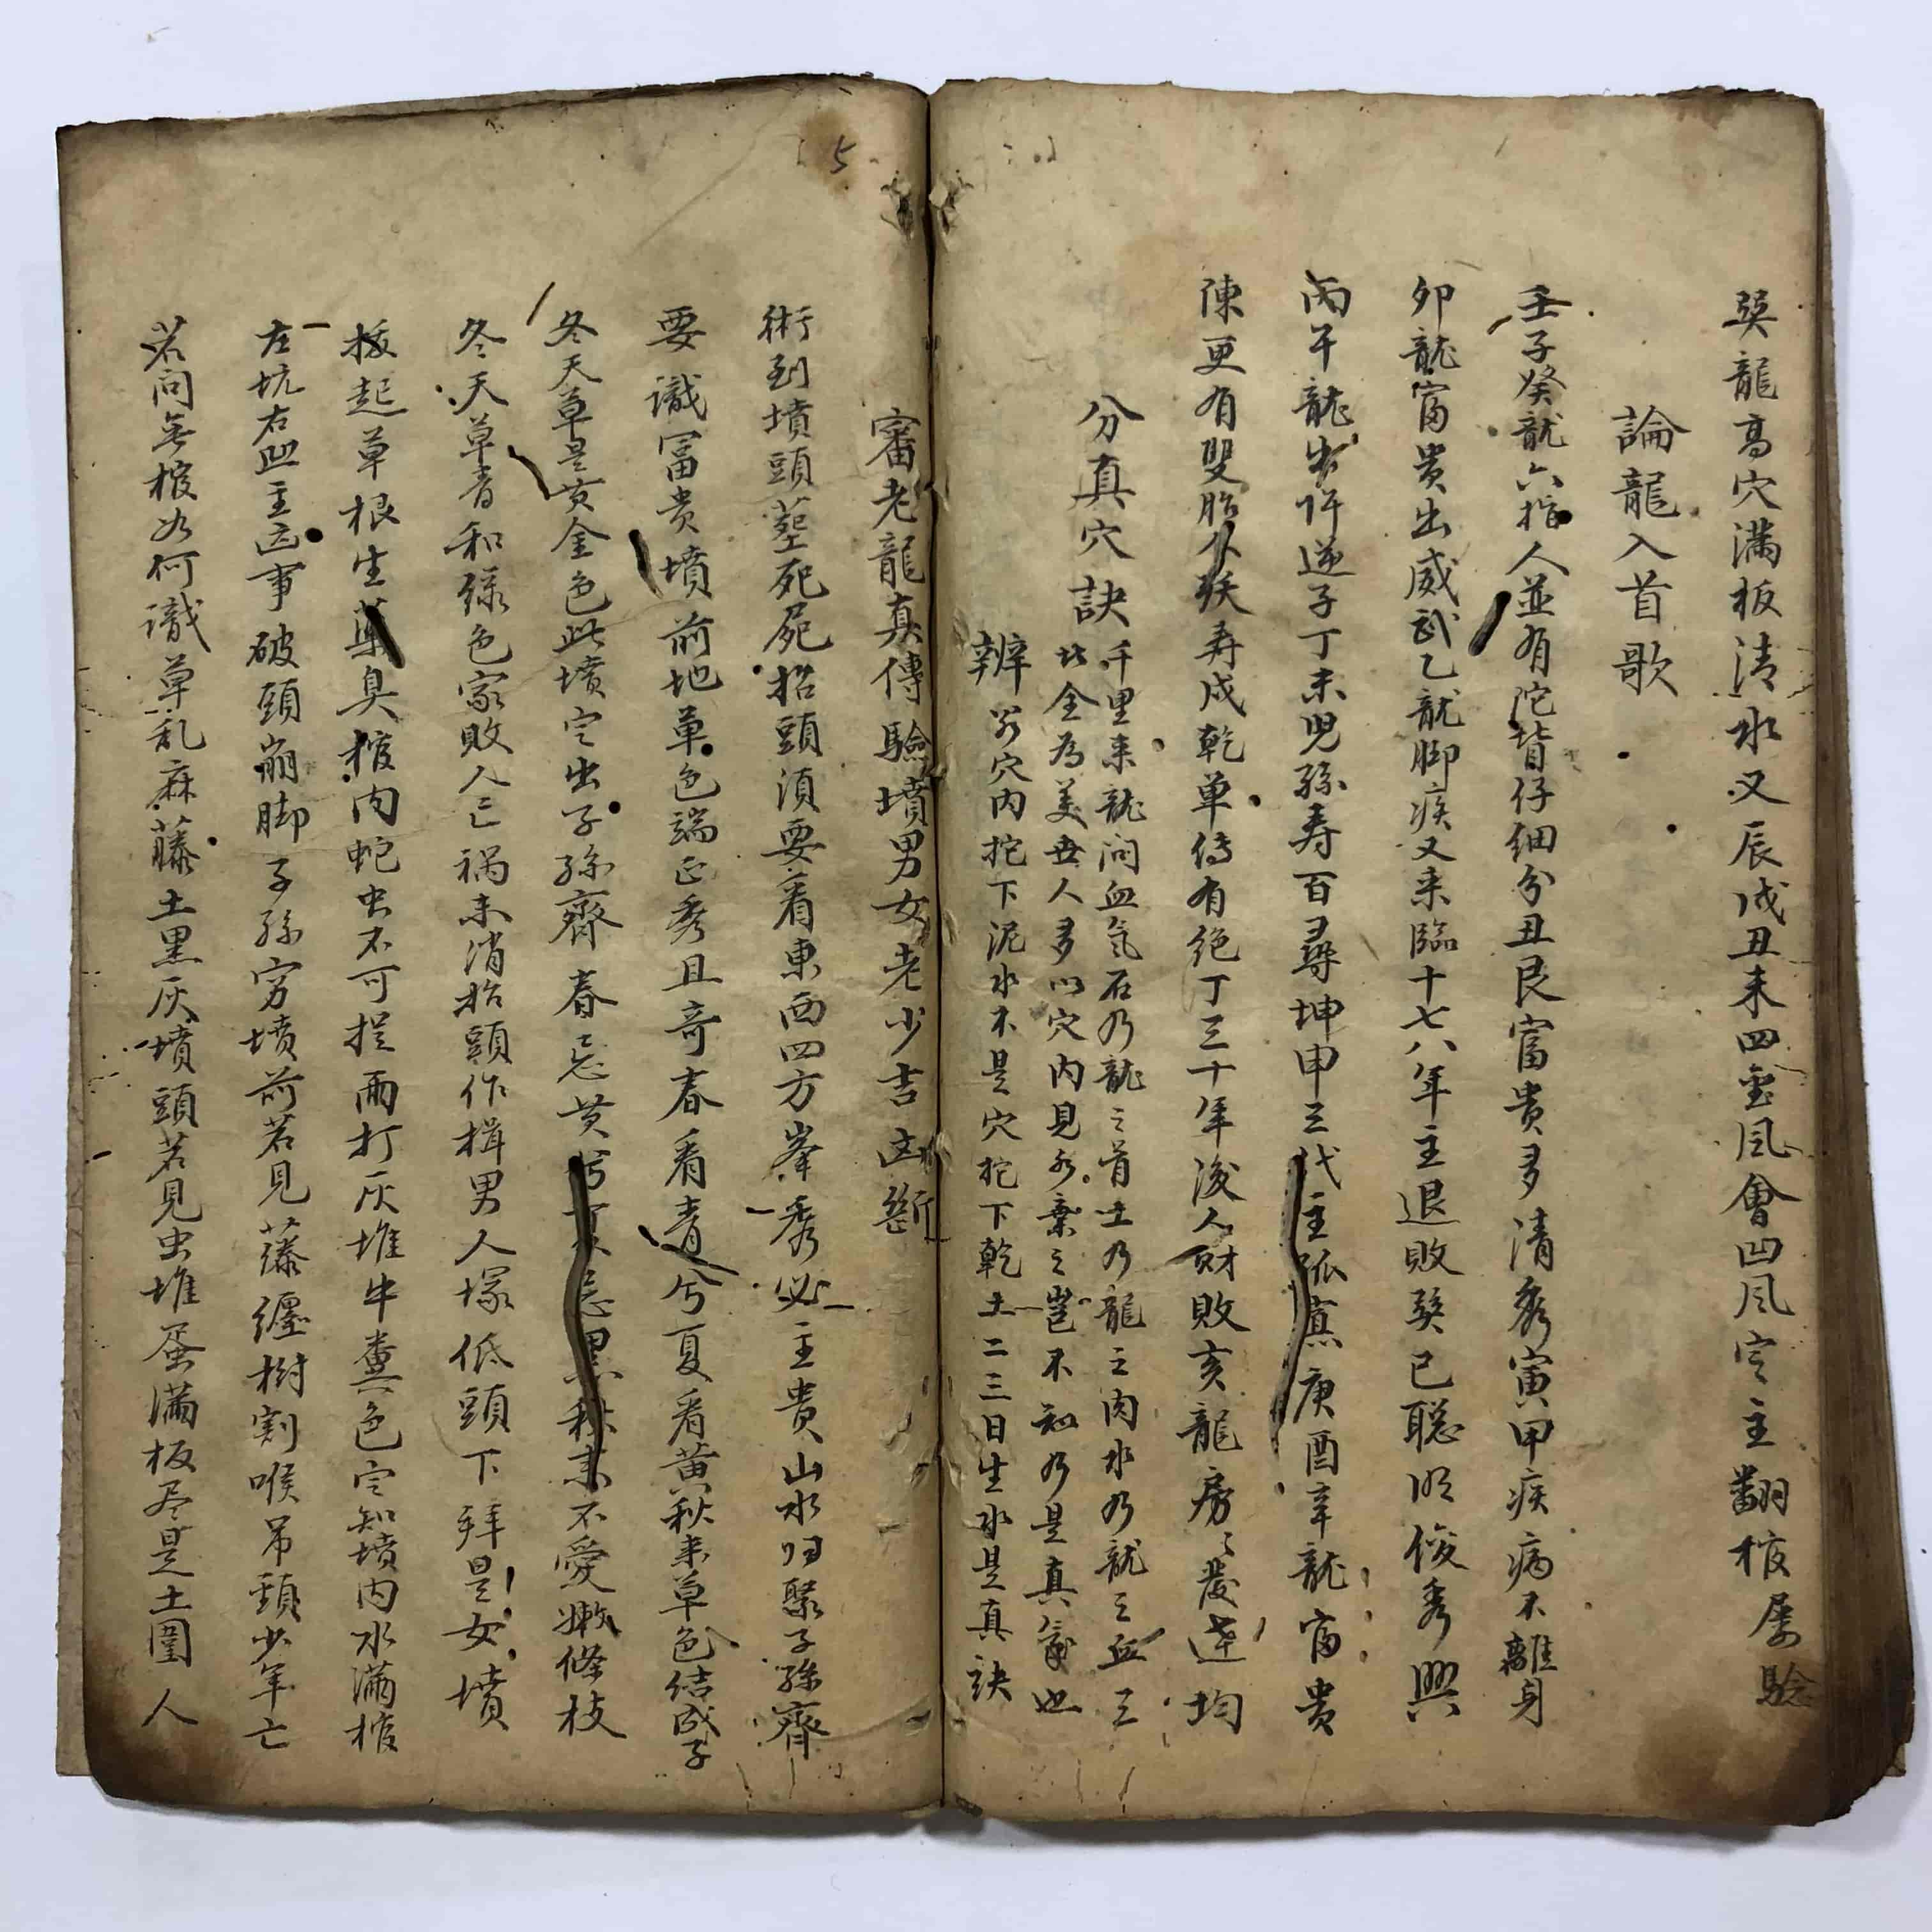 巽龍高穴滿板清水又辰戌丑未四壺風會凹風定主翻棺屡驗
論龍入首歌
壬子癸龍六指人並有陀背仔細分丑艮富貴多清秀寅甲疾病不離身
卯龍富貴出威武乙龍脚疾又来臨十七八年主退敗巽巳聪明俊秀興
丙午龍出忤逆子丁未児孫寿百尋坤申三代主孤寡庚酉辛龍富貴
陳更有雙胎少殀寿戌乾单傳有絶丁三十年後人財敗亥龍房々发達均
分真穴訣
千里来龍問血氣石乃龍之首土乃龍之肉水乃龍之血三
比全為美世人多以穴内見水棄之豈不知乃是真氣也
辨 穴内挖下泥水不是穴挖下乾土二三日生水是真訣
5
審老龍真傳驗墳男女老少吉凶斷
術到墳頭墓死屍抬頭須要看東西四方峯秀必主貴山水归聚子孫齊
要識冨貴墳前地草色端正秀且竒春看青兮夏看黄秋来草色結成子
冬天草是黄金色此墳定出子孫齊春忌黄兮夏忌黑秋来不愛嫩條枝
冬天草青和綠色家敗人亡禍未消抬頭作揖男人塚低頭下拜是女墳
拔起草根生藥臭棺内蛇虫不可提雨打灰堆牛糞色定知墳内水滿棺
左坑右凹主凶事破頭崩脚子孫穷墳前若見藤纏樹割喉吊頸少年亡
若问無棺如何識草乱麻藤土黑灰墳頭若見虫堆蛋滿板尽是土圍人